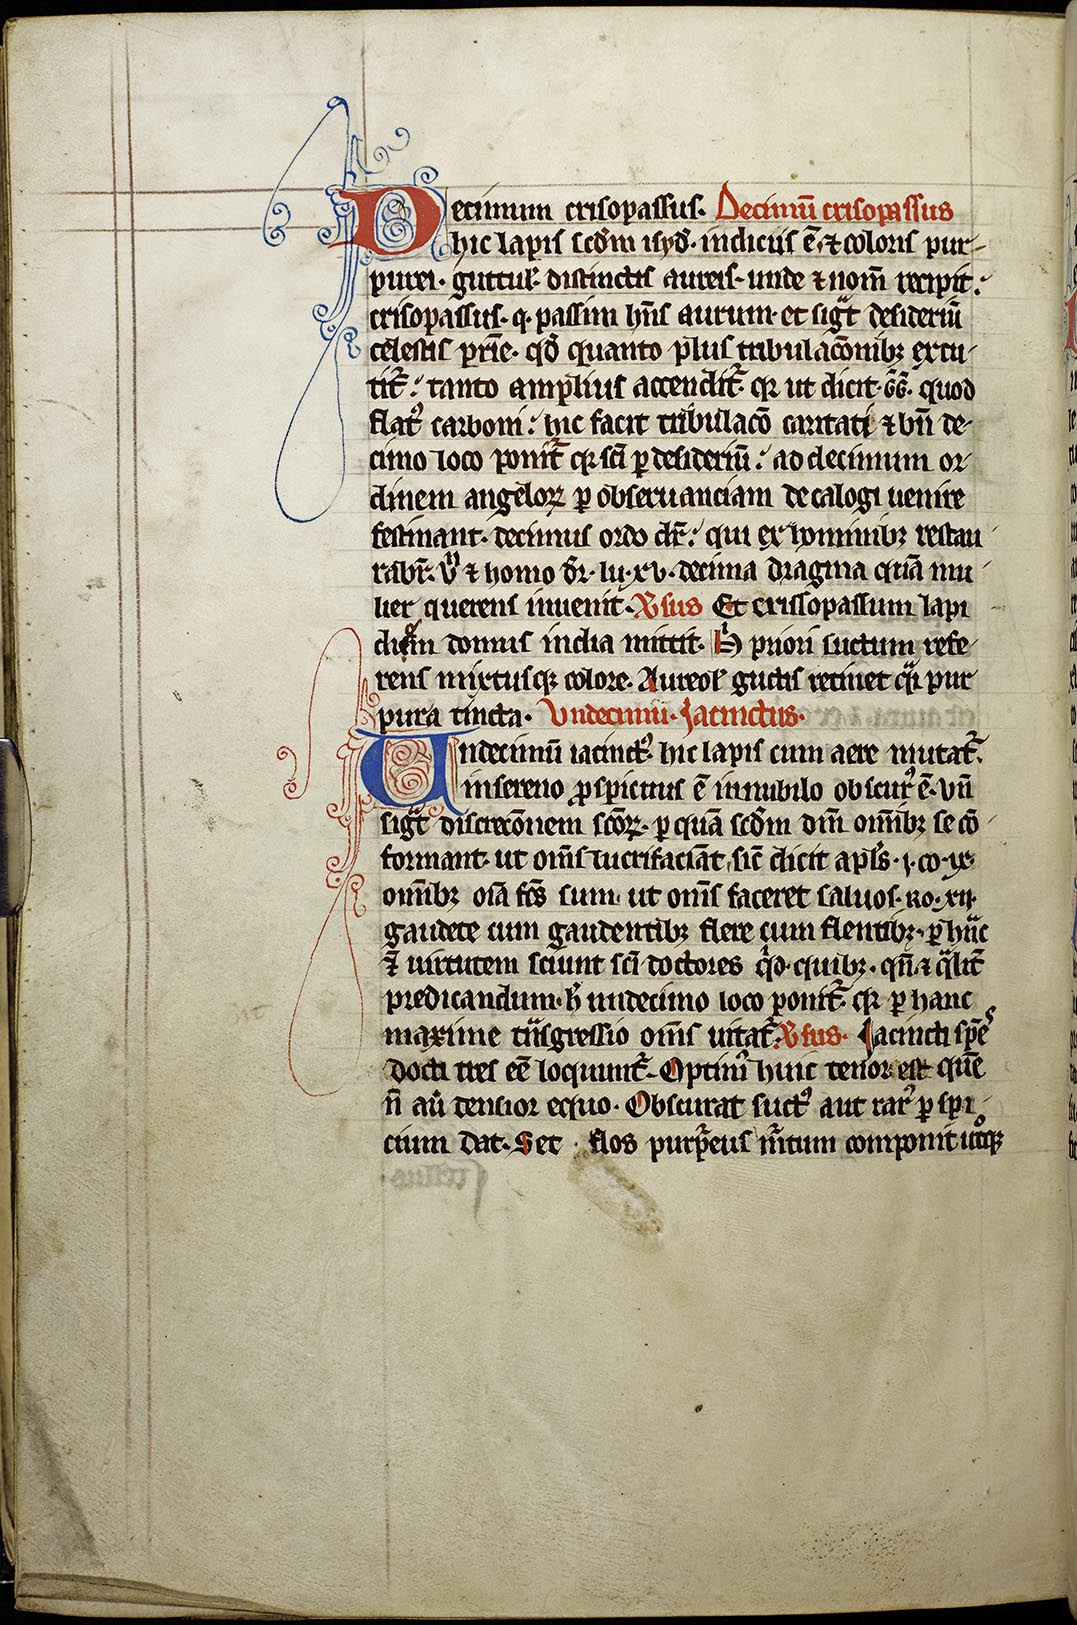 Decimum crisopassus. Decimū crisopassus
hic lapis scđm isyđ. indicus ē ⁊ coloris pur-
purei. guttul. distinctis aureis. unde ⁊ nom̄ recipit.
crisopassus. q. passim hn̄s aurum. et sigͣt desideriū
celestis pr̄ie. qđ quanto plus tribulacōnibꝫ excu
tit᷑. tanto amplius accendit᷑. qꝛ ut dicit. GG. quod
flatꝰ carboni. hic facit tribulacō caritati ⁊ bn̄ de-
cimo loco ponit᷑ qꝛ sc̄i ꝑ desideriū. ad decimum or-
dinem angeloꝝ ꝑ obseruanciam decalogi uenire
festinant. decimus ordo dr̄. qui ex hominibꝫ restau
rabr̄. ⁊ homo dr̄. lu. xv. decima dragma quā mu-
lier querens inuenit. Vsus Et crissopassum lapi
dem domus india mittit. H priori suctum refe-
rens mixtusqꝫ colore. Aureol guttis retinet qͣi pur
pura tincta. Undecimū. Jacinctus.
Undecimū iacinctꝰ. hic lapis cum aere mutat᷑.
in sereno ꝓspicuus ē in nubilo obscurꝰ ē. vn̄
sigͣt discrecōnem scōꝝ. ꝑ quā scđm dm̄ om̄ibꝫ se cō-
formant. ut om̄s lucrifaciāt, sic̄ dicit apl̄s. j. co. ix.
om̄ibꝫ oīa fc̄s sum ut om̄s faceret saluos. Ro. xij.
gaudete cum gaudentibꝫ flere cum flentibꝫ. ꝑ hāc
⁊̄ uirtutem sciunt sc̄i doctores qͥd. quibꝫ. qn̄. ⁊ qͣlit᷑
predicandum. h̄ undecimo loco ponit᷑. qꝛ ꝑ hanc
maxime tͣnsgressio om̄is uitat᷑. Vsus. Jacincti spēs
docti tres eē loquunt᷑. Optimꝰ huic tenor est quē
n̄ aū densior equo. Obscurat suctꝰ aut rarꝰ ꝑ spi-
cium dat. Set flos purpͥeus mͥtum componit utͦqꝫ